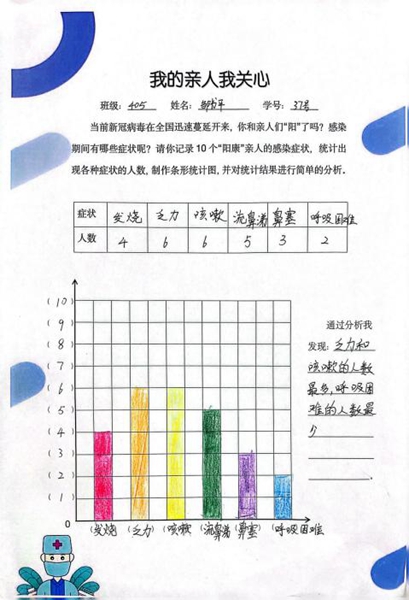 我的亲人我关心
班级: 405 姓名: 学号: 37号
当前新冠病毒在全国迅速蔓延开来,你和亲人们“阳”了吗?感染
期间有哪些症状呢?请你记录10个“阳康”亲人的感染症状,统计出
现各种症状的人数,制作条形统计图,并对统计结果进行简单的分析。
症状 发烧 乏力 咳嗽 流鼻涕 鼻塞 呼吸困难
人数 4 6 6 5 3 2
(10)
(9)
(8)
(7)
(6)
(5)
(4)
(3)
(2)
(1)
0
(发烧 (乏力) (咳嗽) (流鼻涕 (鼻塞) (呼吸困难
通过分析我
发现: 乏力和
咳嗽的人数
最多,呼吸困
难的人数最
少
.